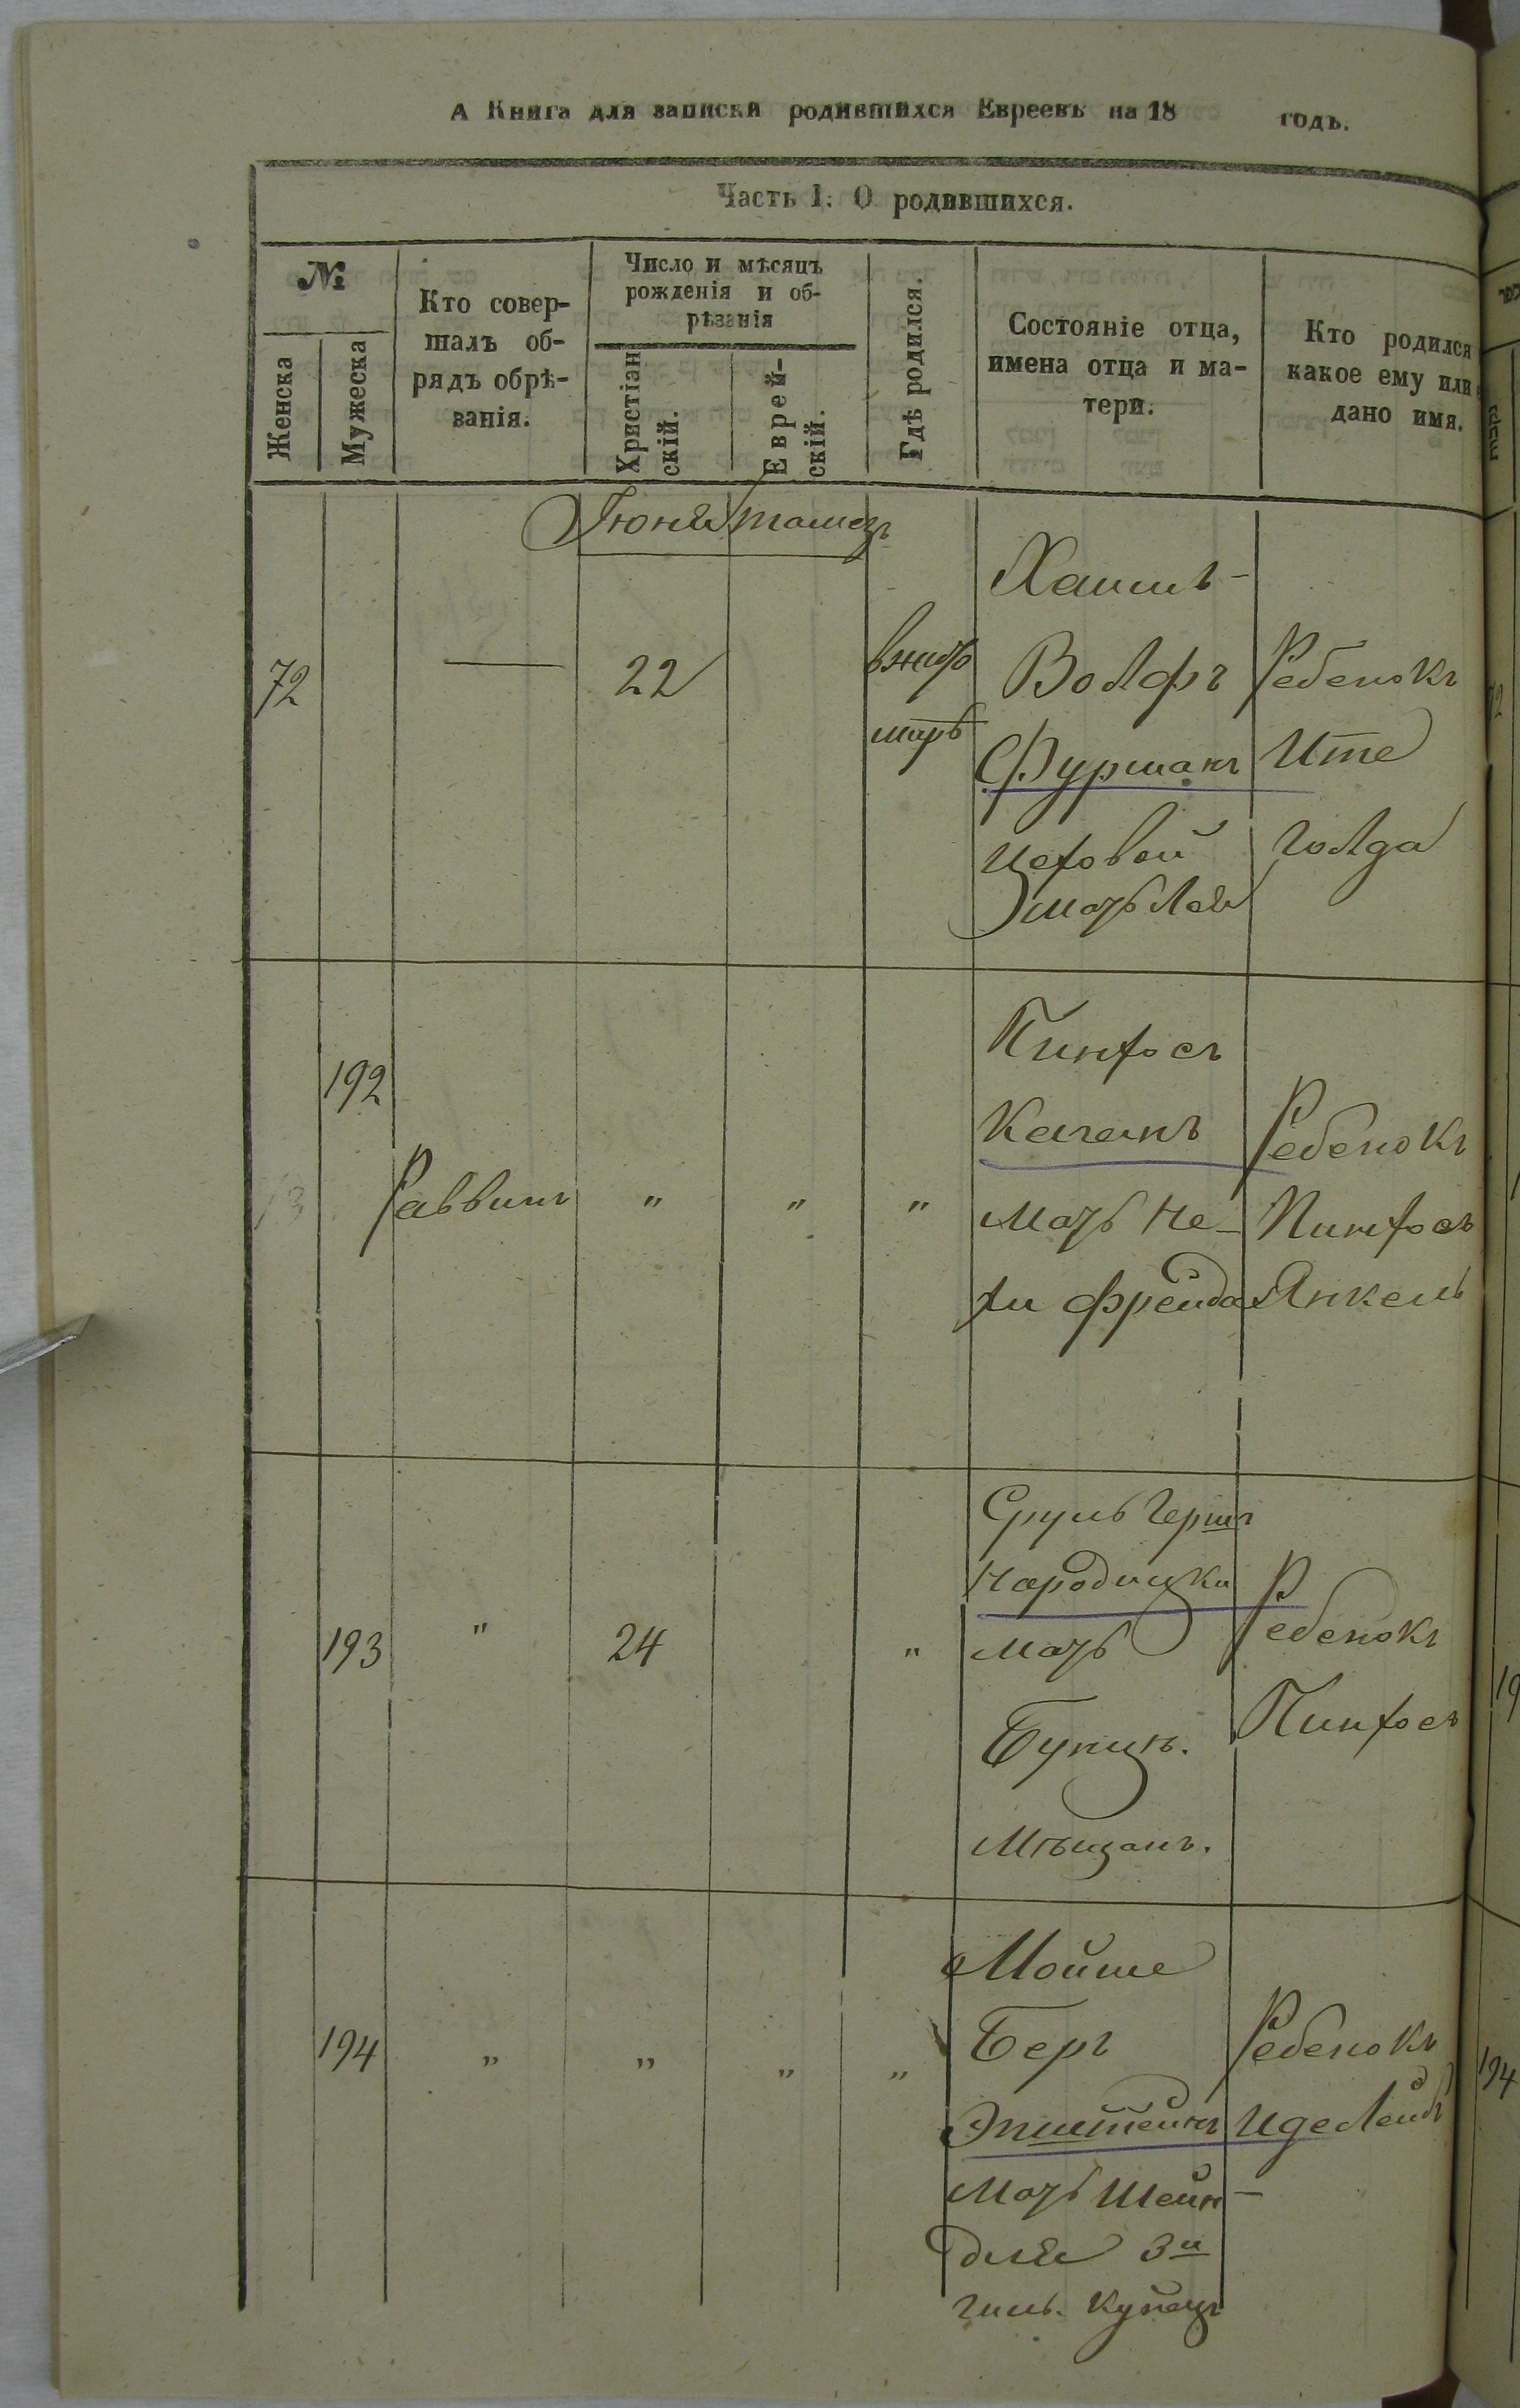 А Книга для записки родившихся Евреевъ на 18 годъ.
Часть I. О родившихся.
№
Женска
Мужеска
Кто совер-
шалъ об-
рядъ обрѣ-
занія.
Число и мѣсяцъ
рожденія и об-
рѣзанія
Христіан
скій.
Еврей-
скій.
Гдѣ родился.
Состояніе отца,
имена отца и ма-
тери.
Кто родился
какое ему или
дано имя.
Іюня
тамузъ
72
22
Хаимъ-
Волфъ
Фурманъ
Цеховой
мать Лея
Ребенокъ
Ите
Голда
192
Раввинъ
"
"
"
Пинхосъ
Каганъ
мать Не-
хи Фрейда
Ребенокъ
Пинхосъ
Янкель
193
"
24
"
Сруль Герш
Народицки
мать
Бунцъ.
Мѣщанъ.
Ребенокъ
Пинхосъ
194
"
"
"
"
Мойше
Беръ
Эпштейнъ
мать Шейн-
для 3й
гиль. Купецъ
Ребенокъ
Иде Лейбъ
72
194